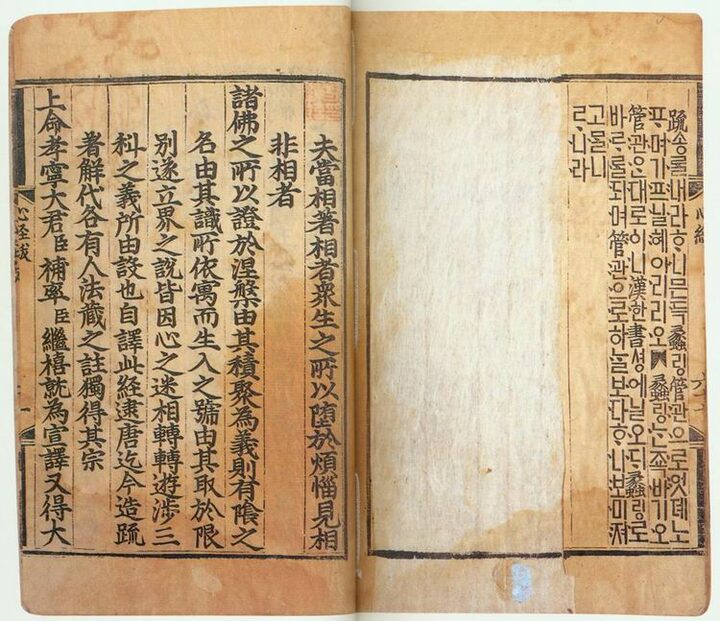 疏송ᄅᆞᆯ내라ᄒᆞ니믄득蠡링管관ᄋᆞ로엇뎨노
ᄑᆞ며기프닐혜아리리오蠡링ᄂᆞᆫ죠바기오
管관ᄋᆞᆫ대로이니漢한書셩에닐오ᄃᆡ蠡링로
바ᄅᆞᆯ되며管관ᄋᆞ로하ᄂᆞᆯ보다ᄒᆞ니보미져
고ᄆᆞᆯ니
ᄅᆞ니라
夫當相著相者衆生之所以堕於煩惱見相
非相者
諸佛之所以證於涅槃由其積聚為義則有陰之
名由其識所依寓而生入之號由其取於限
別遂立界之說皆因心之迷相轉轉遊涉三
科之義所由設也自譯此経逮唐迄今造疏
者解代各有人法蔵之註獨得其宗
上命孝寧大君臣補率臣繼禧就為宣譯又得大
心経跋